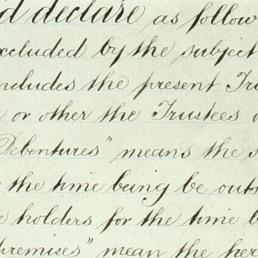 d declare as follow
xcluded by the subject
ncludes the present Tru
or other the Trustees o
Debentures" means the s
the time being be outs
e holders for the time b
premises" mean the her